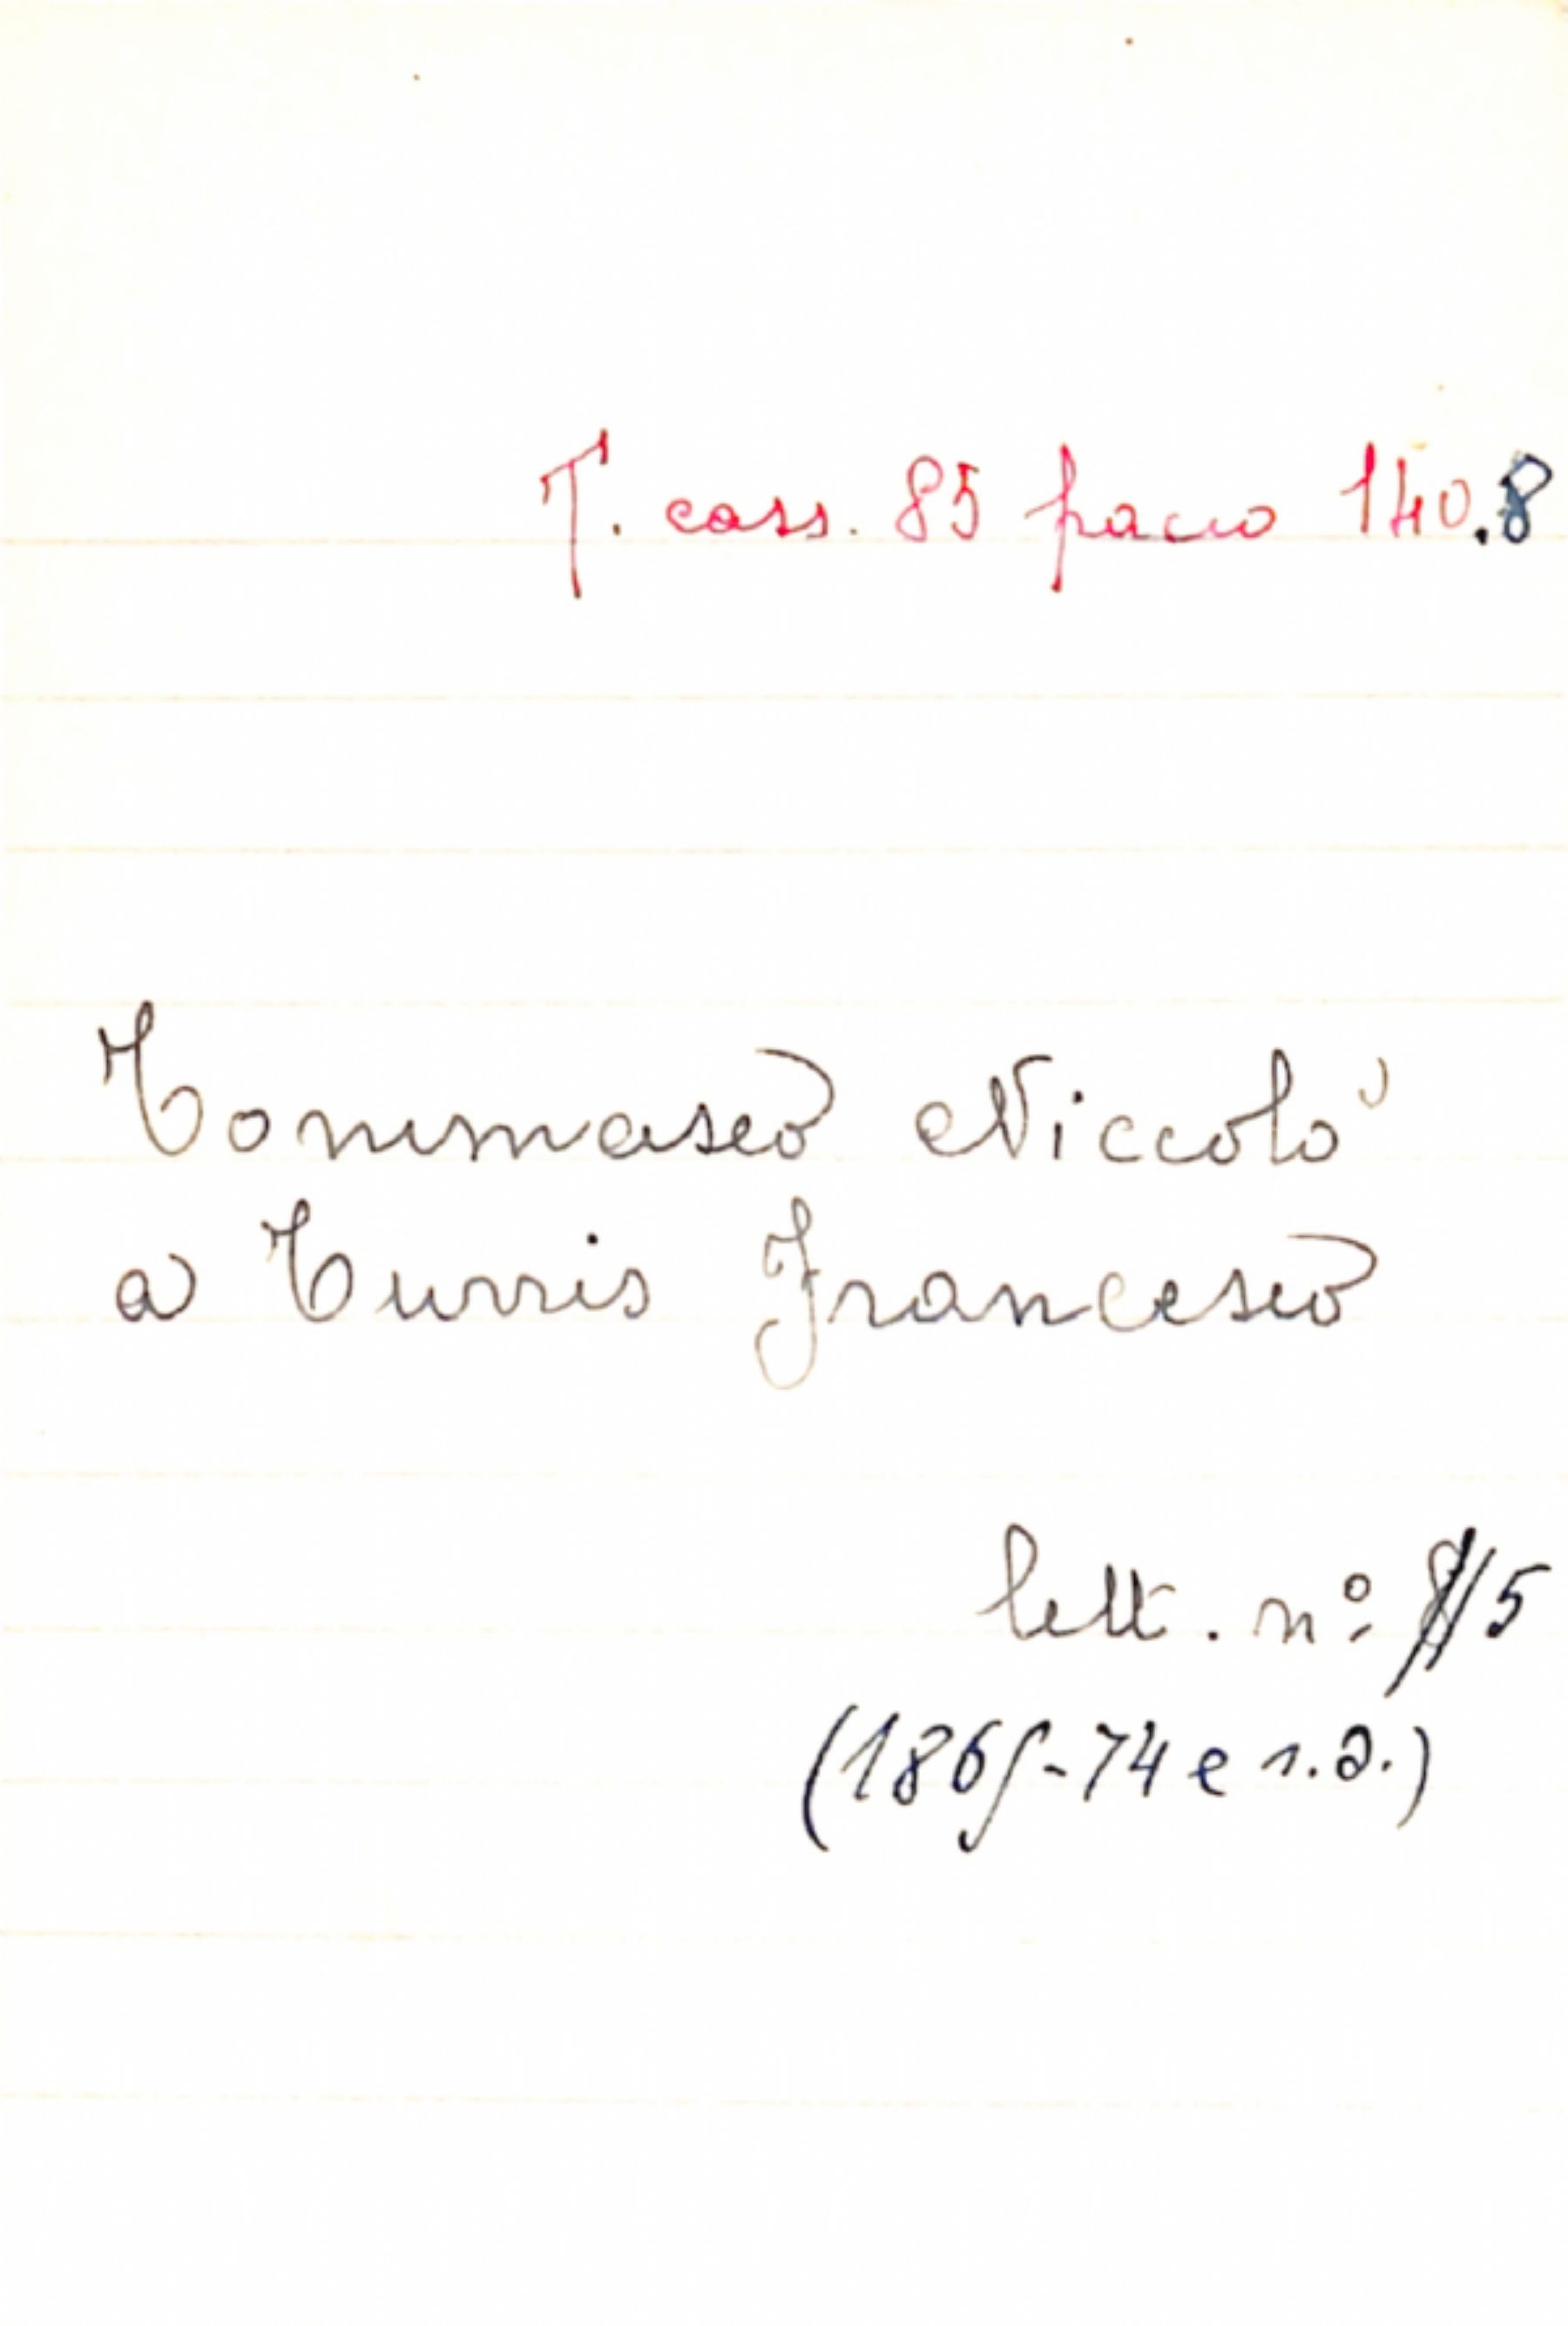 T. cass. 85 pacco 140.8
Tommaseo Niccolò
a Turris Francesco
lett. n° 5
(186 -74 e s.d.)